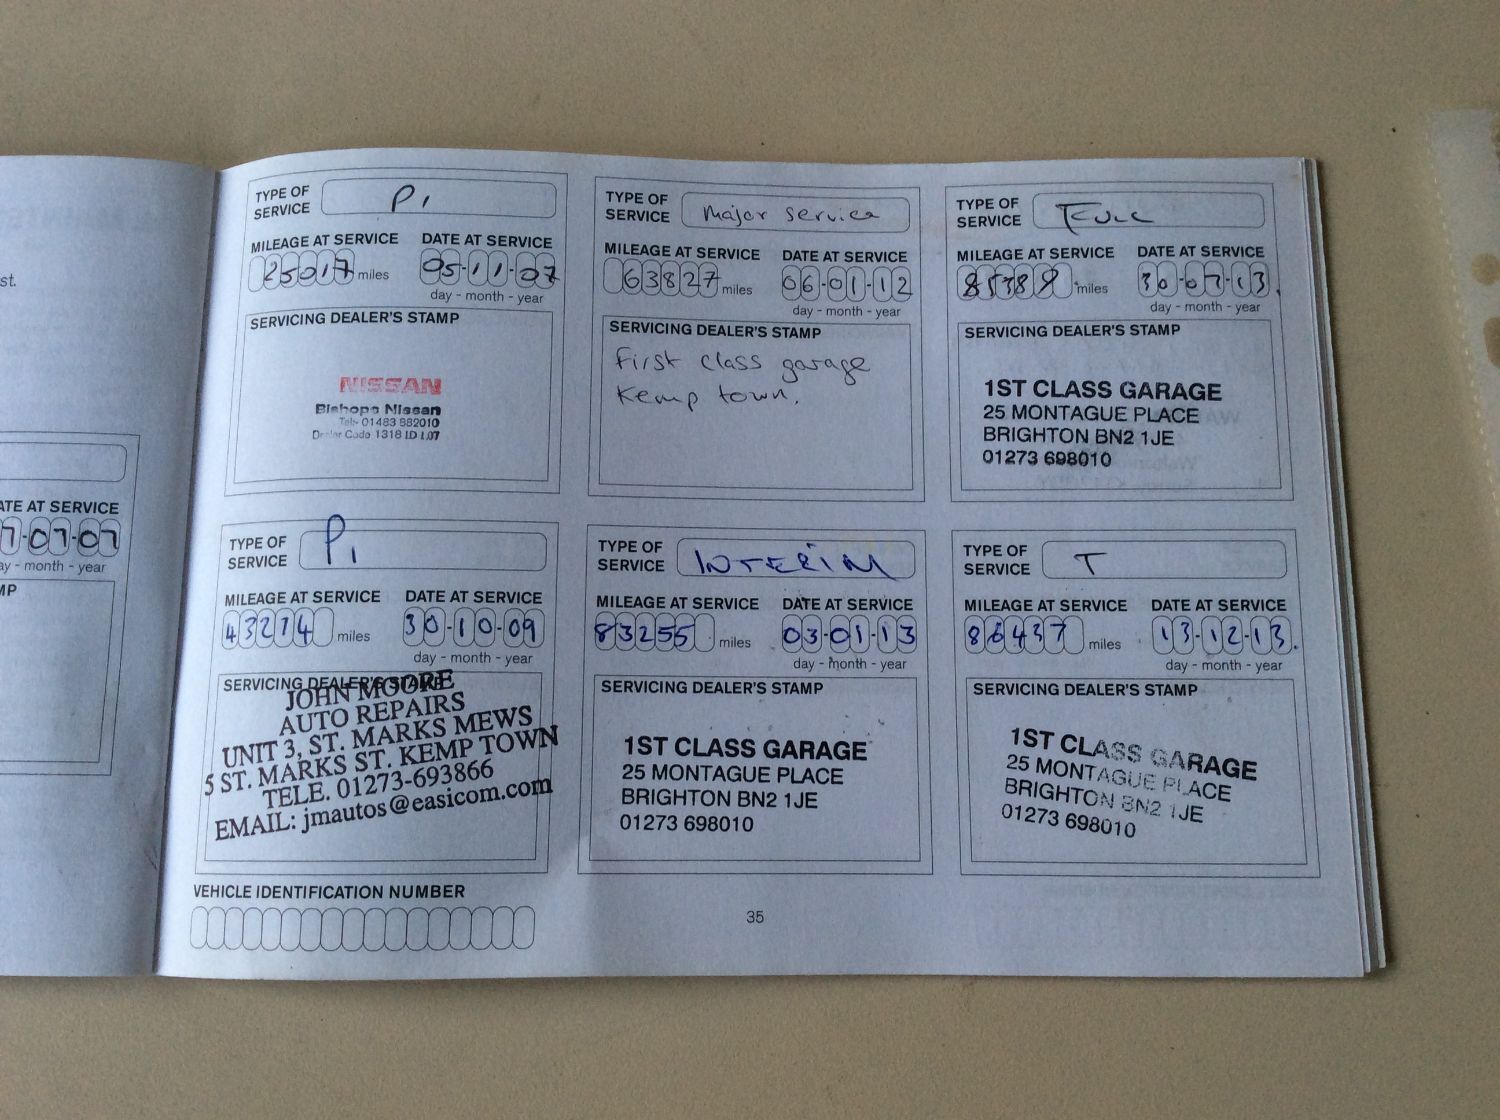 st.
ATE AT SERVICE
7-07-07
ay - month - year
MP
TYPE OF SERVICE P1
MILEAGE AT SERVICE DATE AT SERVICE
25017 miles 05-11-07
day - month - year
SERVICING DEALER'S STAMP
NISSAN
Bishops Nissan
Tel:- 01483 882010
Dealer Code 1318 ID 1.07
TYPE OF SERVICE P1
MILEAGE AT SERVICE DATE AT SERVICE
43214 miles 30-10-09
day - month - year
SERVICING DEALER'S STAMP
JOHN MOORE
AUTO REPAIRS
UNIT 3, ST. MARKS MEWS
5 ST. MARKS ST. KEMP TOWN
TELE. 01273-693866
EMAIL: jmautos@easicom.com
VEHICLE IDENTIFICATION NUMBER
TYPE OF SERVICE Major service
MILEAGE AT SERVICE DATE AT SERVICE
63827 miles 06-01-12
day - month - year
SERVICING DEALER'S STAMP
First class garage
Kemp town.
TYPE OF SERVICE INTERIM
MILEAGE AT SERVICE DATE AT SERVICE
83255 miles 03-01-13
day - month - year
SERVICING DEALER'S STAMP
1ST CLASS GARAGE
25 MONTAGUE PLACE
BRIGHTON BN2 1JE
01273 698010
35
TYPE OF SERVICE FULL
MILEAGE AT SERVICE DATE AT SERVICE
miles 30-07-13.
day - month - year
SERVICING DEALER'S STAMP
1ST CLASS GARAGE
25 MONTAGUE PLACE
BRIGHTON BN2 1JE
01273 698010
TYPE OF SERVICE T
MILEAGE AT SERVICE DATE AT SERVICE
86437 miles 13-12-13.
day - month - year
SERVICING DEALER'S STAMP
1ST CLASS GARAGE
25 MONTAGUE PLACE
BRIGHTON BN2 1JE
01273 698010